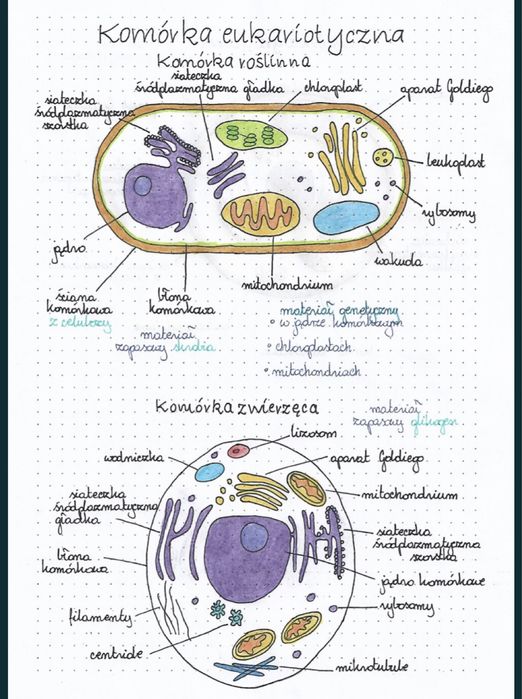 Komórka eukariotyczna
Komórka roślinna
siateczka
śródplazmatyczna gładka
chloroplast
aparat Goldiego
siateczka
śródplazmatyczna
szorstka
leukoplast
rybosomy
jądro
wakuola
mitochondrium
ściana
komórkowa
z celulozy
błona
komórkowa
materiał
zapasowy skrobia
materiał genetyczny
• w jądrze komórkowym
• chloroplastach
• mitochondriach
Komórka zwierzęca
materiał
zapasowy glikogen
lizosom
wodniczka
aparat Goldiego
mitochondrium
siateczka
śródplazmatyczna
gładka
siateczka
śródplazmatyczna
szorstka
błona
komórkowa
jądro komórkowe
rybosomy
filamenty
centriole
mikrotubule